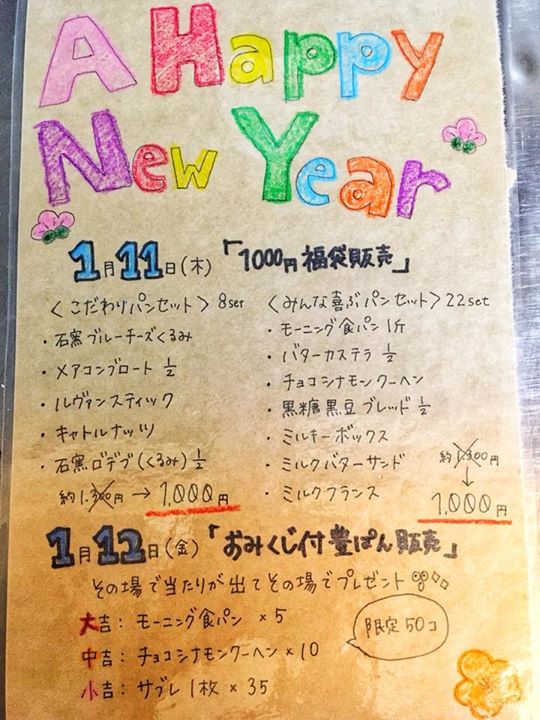 A Happy
New Year
1月11日(木)「1000円福袋販売」
〈こだわりパンセット〉8set
・石窯ブルーチーズくるみ
・メアコンブロート 1/2
・ルヴァンスティック
・キャトルナッツ
・石窯ロデブ(くるみ) 1/2
約1.300円 → 1,000円
〈みんな喜ぶパンセット〉22set
・モーニング食パン 1斤
・バターカステラ 1/2
・チョコシナモンクーヘン
・黒糖黒豆ブレッド 1/2
・ミルキーボックス
・ミルクバターサンド
・ミルクフランス
約1.300円
↓
1,000円
1月12日(金)「おみくじ付豊ぱん販売」
その場で当たりが出てその場でプレゼント
大吉: モーニング食パン ×5
中吉: チョコシナモンクーヘン ×10
小吉: サブレ 1枚 × 35
限定50コ